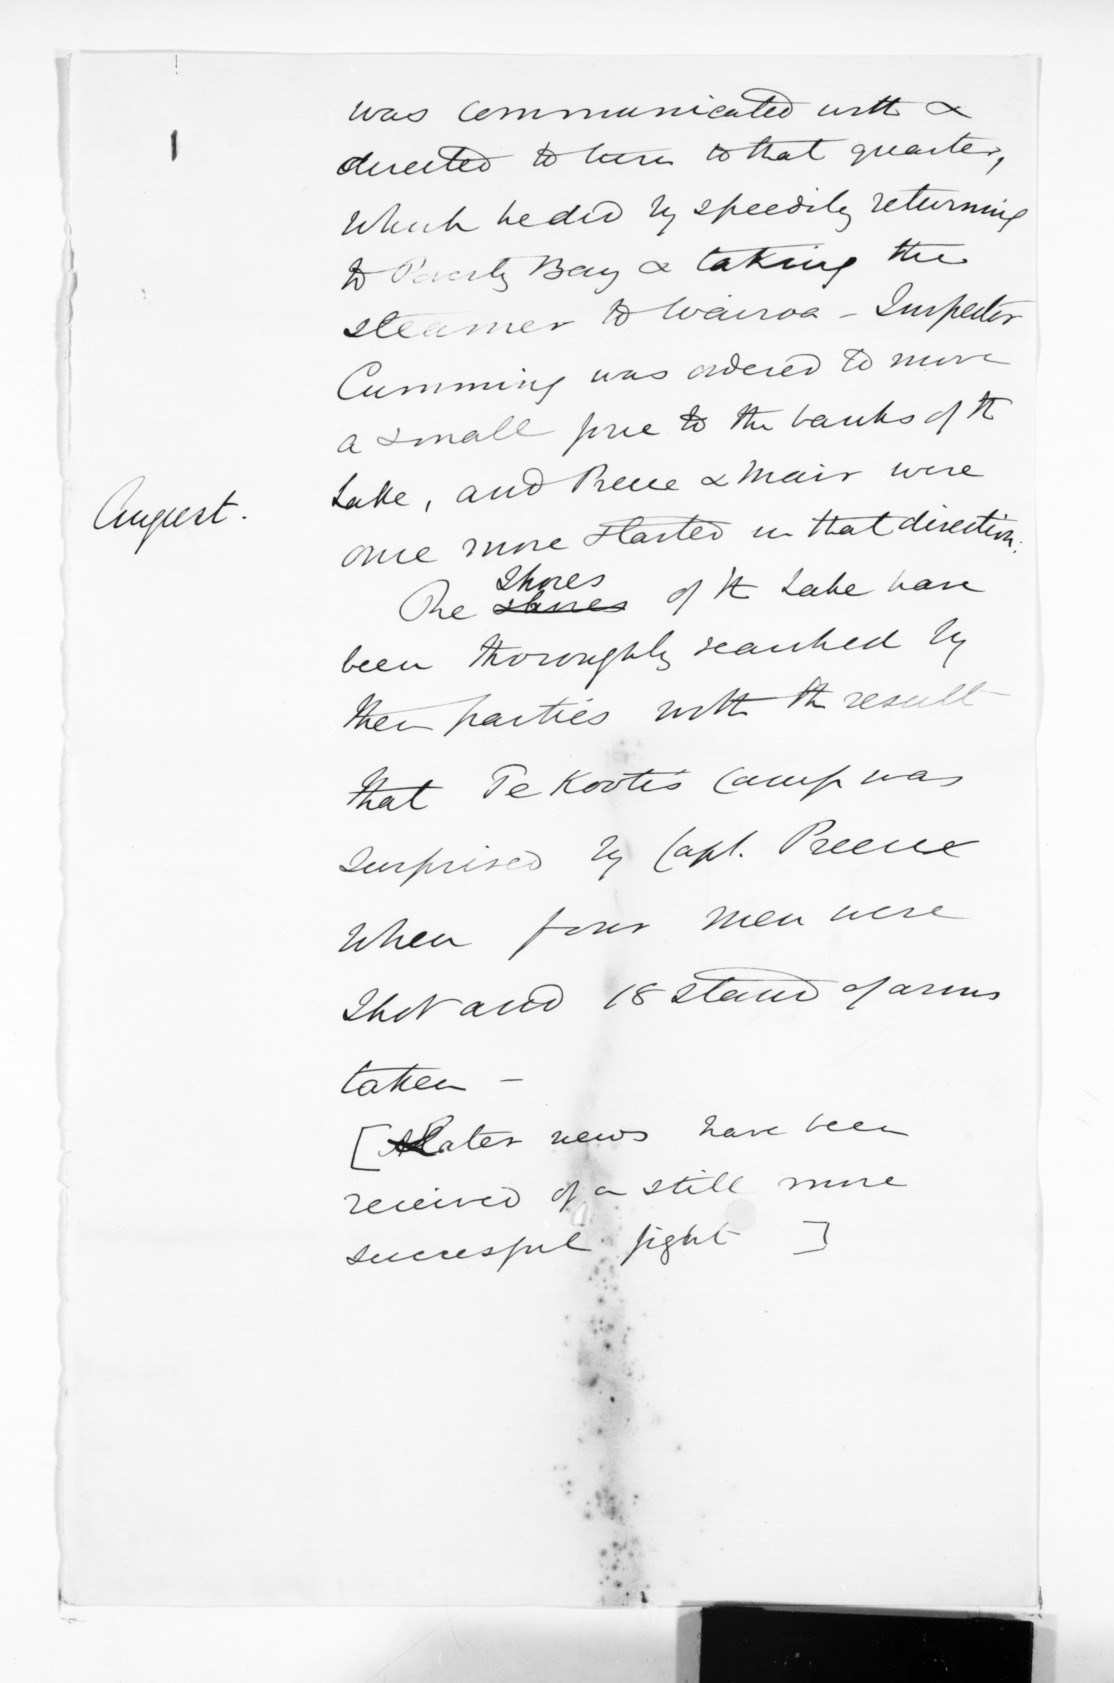 was communicated with &
directed to turn to that quarter,
which he did by speedily returning
to Poverty Bay & taking the
steamer to Wairoa - Inspector
Cumming was ordered to move
a small force to the banks of the
August.
Lake, and Preece & Mair were
once more started in that direction.
Shores
The shores of the Lake have
been thoroughly searched by
their parties with the result
that Te Kooti's Camp was
surprised by Capt. Preece
when four men were
shot and 18 stand of arms
taken -
[Later news have been
received of a still more
successful fight ]